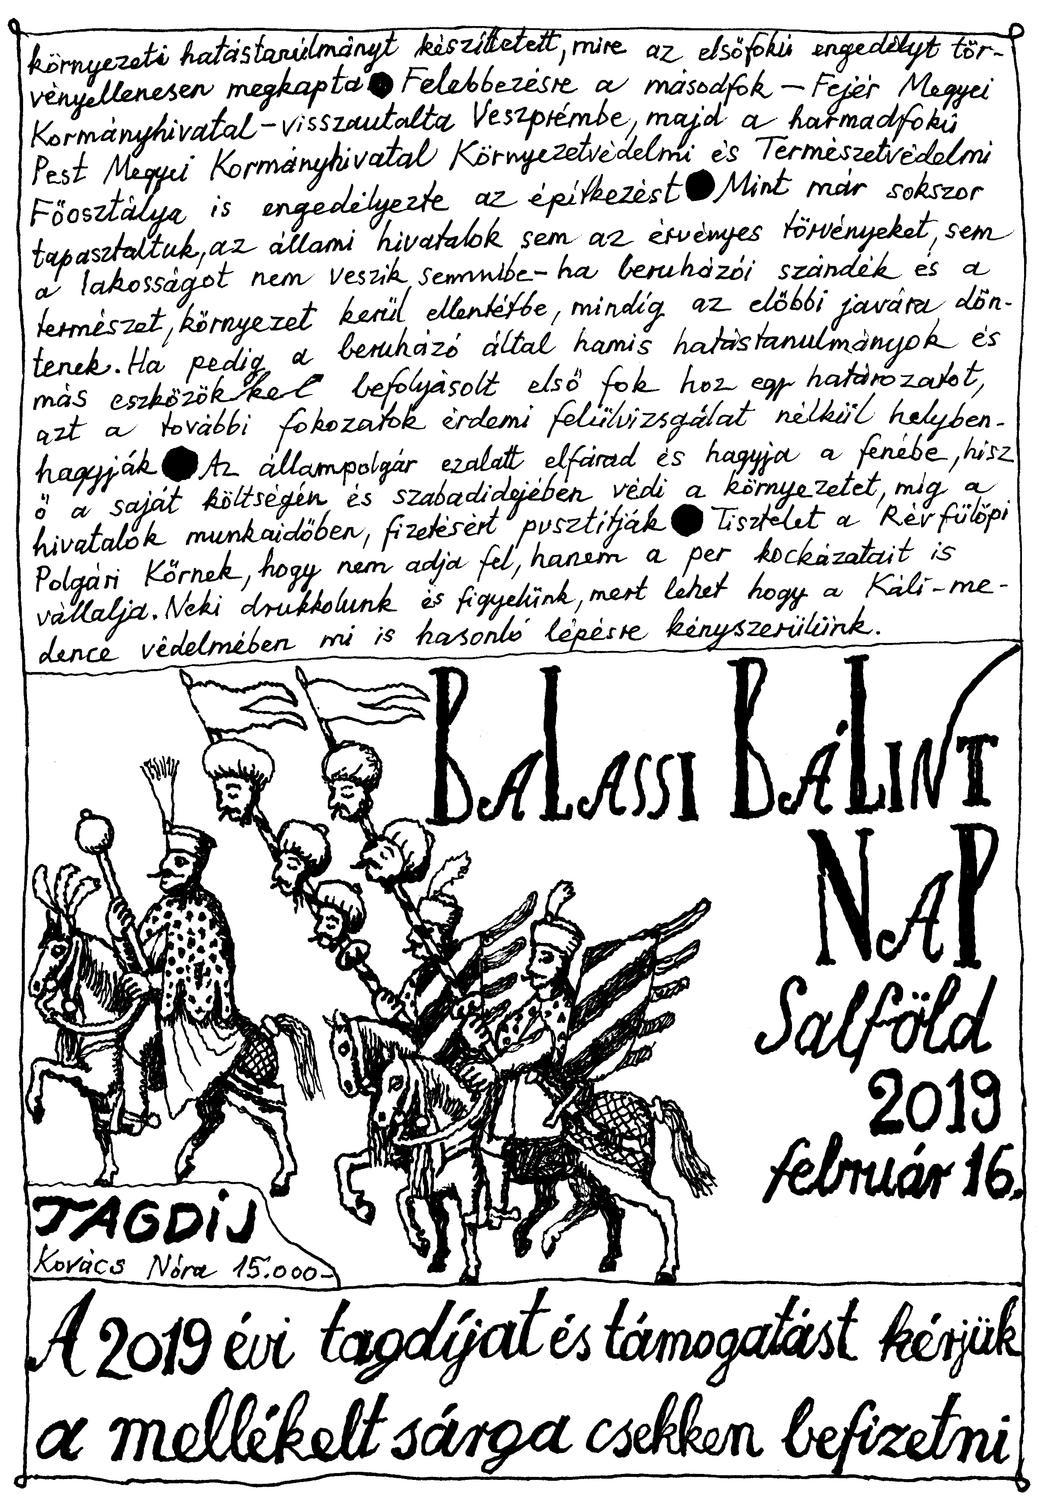 környezeti hatástanúlmányt készíttetett, mire az elsőfokú engedélyt tör-
vényellenesen megkapta ● Felebbezésre a másodfok – Fejér Megyei
Kormányhivatal – visszautalta Veszprémbe, majd a harmadfokú
Pest Megyei Kormányhivatal Környezetvédelmi és Természetvédelmi
Főosztálya is engedélyezte az építkezést ● Mint már sokszor
tapasztaltuk, az állami hivatalok sem az érvényes törvényeket, sem
a lakosságot nem veszik semmibe – ha beruházói szándék és a
természet, környezet kerül ellentétbe, mindíg az előbbi javára dön-
tenek. Ha pedig a beruházó által hamis hatástanulmányok és
más eszközökkel befolyásolt első fok hoz egy határozatot,
azt a további fokozatok érdemi felülvizsgálat nélkül helyben-
hagyják ● Az állampolgár ezalatt elfárad és hagyja a fenébe, hisz
ő a saját költségén és szabadidejében védi a környezetet, míg a
hivatalok munkaidőben, fizetésért pusztítják ● Tisztelet a Révfülöpi
Polgári Körnek, hogy nem adja fel, hanem a per kockázatait is
vállalja. Neki drukkolunk és figyelünk, mert lehet hogy a Káli-me-
dence védelmében mi is hasonló lépésre kényszerülünk.
BALASSI BÁLINT
NAP
Salföld
2019
február 16.
TAGDÍJ
Kovács Nóra 15.000-
A 2019 évi tagdíjat és támogatást kérjük
a mellékelt sárga csekken befizetni